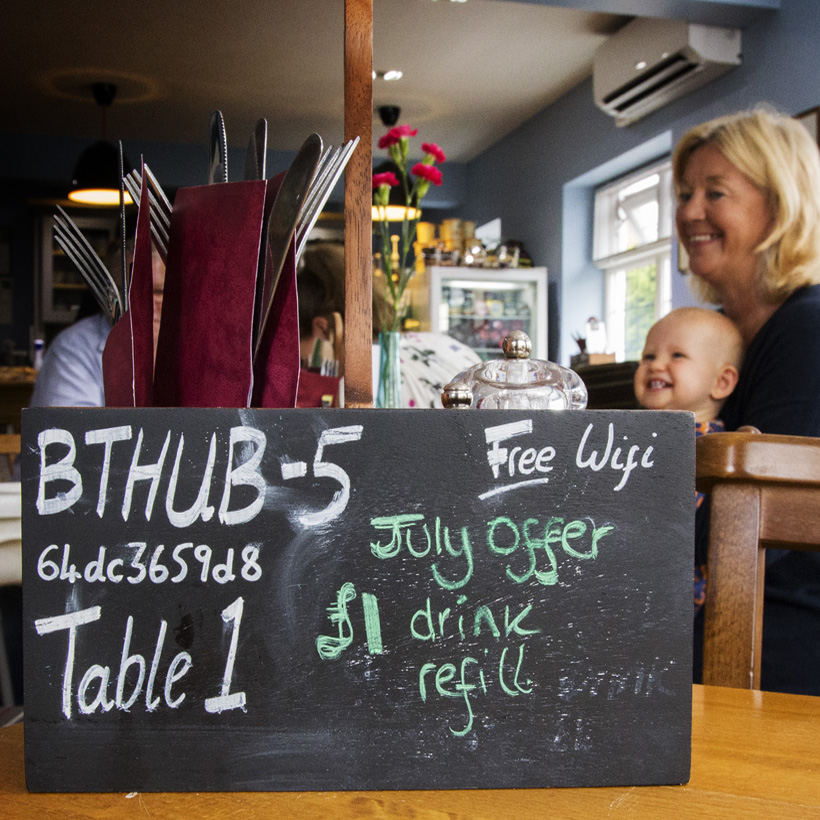 BTHUB-5
Free Wifi
64dc3659d8
July Offer
£1 drink
refill
Table 1